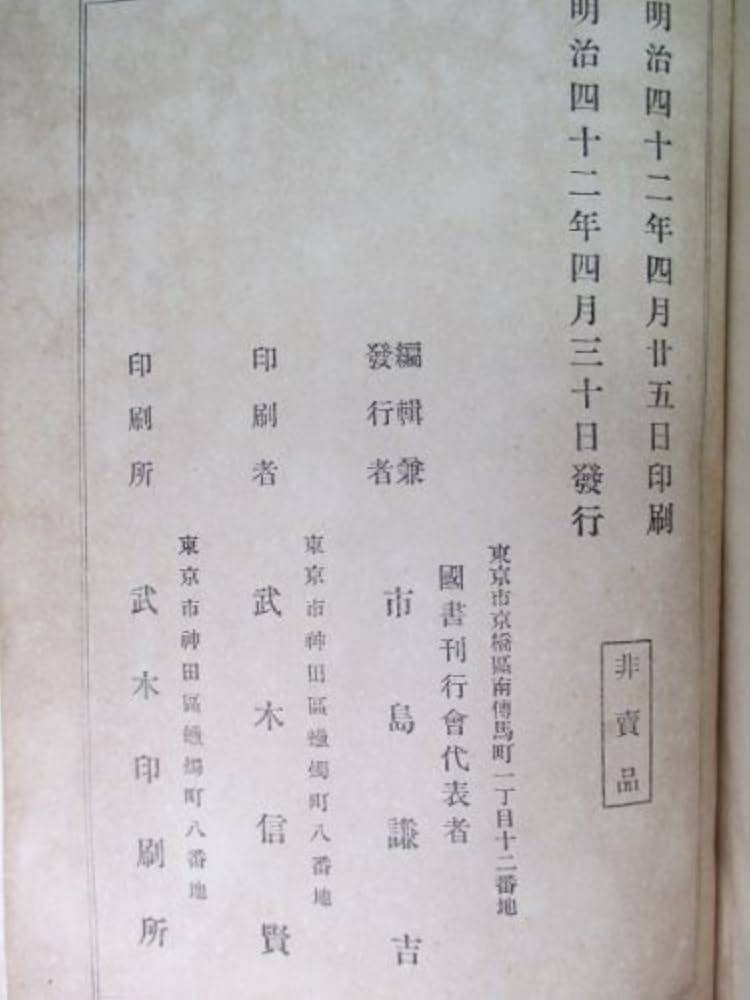 明治四十二年四月廿五日印刷
明治四十二年四月三十日發行
非賣品
東京市京橋區南傳馬町一丁目十二番地
國書刊行會代表者
編輯兼
發行者
市島謙吉
東京市神田區蠟燭町八番地
印刷者
武木信賢
東京市神田區蠟燭町八番地
印刷所
武木印刷所